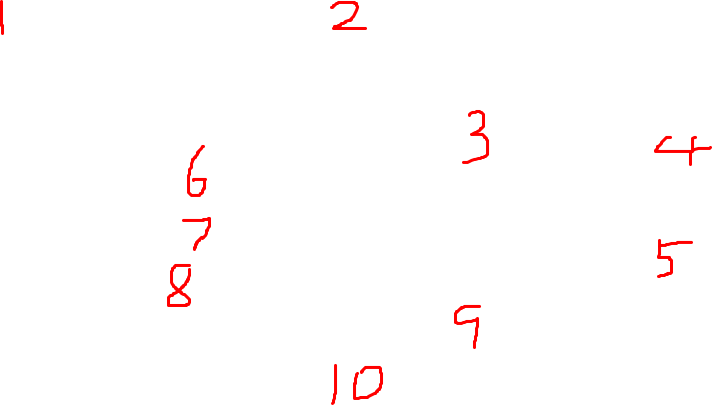 1 2
3 4
6
7
5
8
9
10